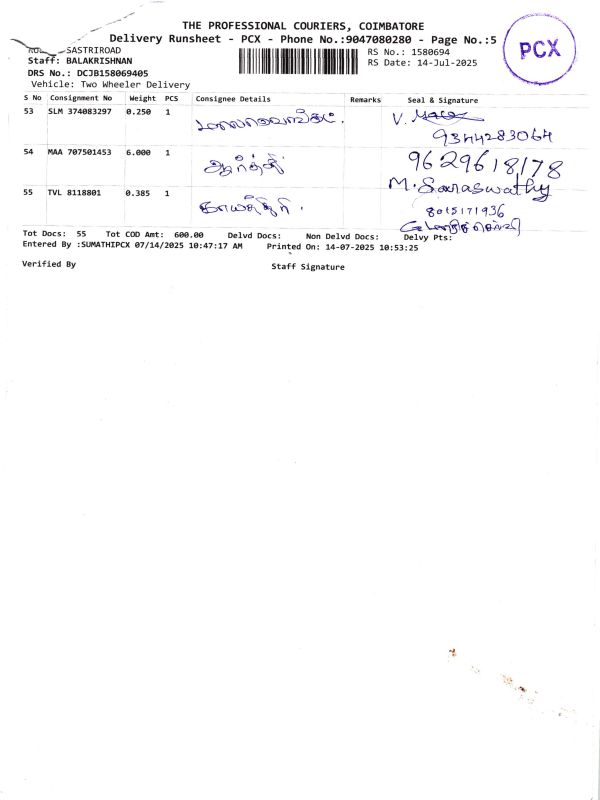 THE PROFESSIONAL COURIERS, COIMBATORE
Delivery Runsheet - PCX - Phone No.:9047080280 - Page No.:5
PCX
SASTRIROAD
RS No.: 1580694
Staff: BALAKRISHNAN
RS Date: 14-Jul-2025
DRS No.: DCJB158069405
Vehicle: Two Wheeler Delivery
S No Consignment No Weight PCS Consignee Details Remarks Seal & Signature
53 SLM 374083297 0.250 1 V.
9344283064
54 MAA 707501453 6.000 1 ஆர்த்தி 9629618178
M. Saraswathy
55 TVL 8118801 0.385 1 காயத்திரி. 8015171936
Tot Docs: 55 Tot COD Amt: 600.00 Delvd Docs: Non Delvd Docs: Delvy Pts:
Entered By :SUMATHIPCX 07/14/2025 10:47:17 AM Printed On: 14-07-2025 10:53:25
Verified By Staff Signature